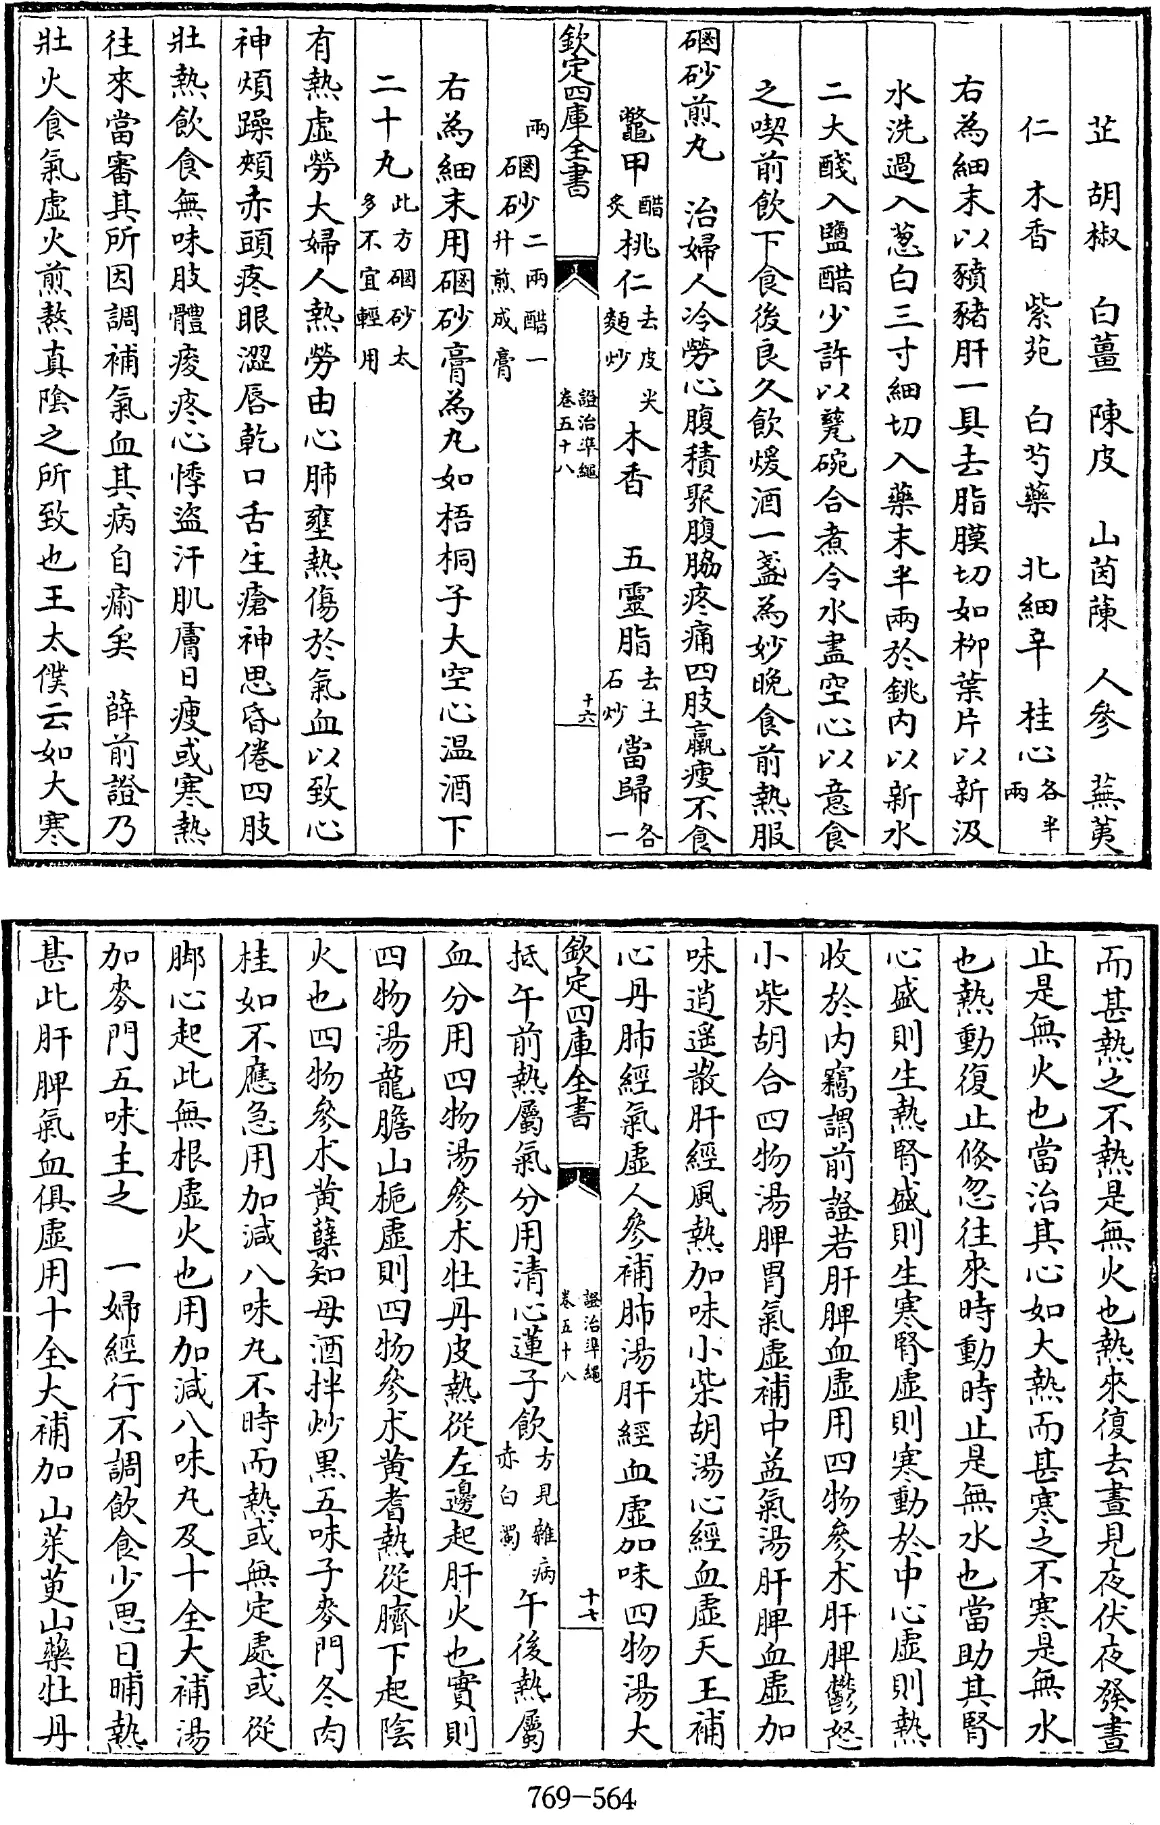 芷　胡椒　白薑　陳皮　山茵蔯　人參　蕪荑
仁　木香　紫菀　白芍藥　北細辛　桂心各半兩
右為細末以豶豬肝一具去脂膜切如柳葉片以新汲
水洗過入葱白三寸細切入藥末半兩於銚内以新水
二大醆入鹽醋少許以甆碗合煮令水盡空心以意食
之喫前飲下食後良久飲煖酒一盞為妙晩食前熱服
硇砂煎丸　治婦人冷勞心腹積聚腹脇疼痛四肢羸瘦不食
鼈甲醋炙桃仁去皮尖麫炒木香　五靈脂去土石炒當歸各一
欽定四庫全書　證治凖繩卷五十八　十六
兩　硇砂二兩醋一升煎成膏
右為細末用硇砂膏為丸如梧桐子大空心温酒下
二十丸此方硇砂太多不宜輕用
有熱虚勞大婦人熱勞由心肺壅熱傷於氣血以致心
神煩躁頰赤頭疼眼澀唇乾口舌生瘡神思昏倦四肢
壯熱飲食無味肢體痠疼心悸盗汗肌膚日瘦或寒熱
往來當審其所因調補氣血其病自痊矣　薛前證乃
壯火食氣虚火煎熬真隂之所致也王太僕云如大寒
而甚熱之不熱是無火也熱來復去晝見夜伏夜發晝
止是無火也當治其心如大熱而甚寒之不寒是無水
也熱動復止倐忽往來時動時止是無水也當助其腎
心盛則生熱腎盛則生寒腎虚則寒動於中心虚則熱
收於内竊謂前證若肝脾血虚用四物參术肝脾鬱怒
小柴胡合四物湯脾胃氣虚補中益氣湯肝脾血虚加
味逍遥散肝經風熱加味小柴胡湯心經血虚天王補
心丹肺經氣虚人參補肺湯肝經血虚加味四物湯大
欽定四庫全書　證治凖繩卷五十八　十七
抵午前熱屬氣分用清心蓮子飲方見雜病赤白濁午後熱屬
血分用四物湯參术牡丹皮熱從左邊起肝火也實則
四物湯龍膽山梔虚則四物參术黄耆熱從臍下起陰
火也四物參术黄蘖知母酒拌炒黑五味子麥門冬肉
桂如不應急用加減八味丸不時而熱或無定處或從
脚心起此無根虚火也用加減八味丸及十全大補湯
加麥門五味主之　一婦經行不調飲食少思日晡熱
甚此肝脾氣血俱虚用十全大補加山茱萸山藥牡丹
769-564